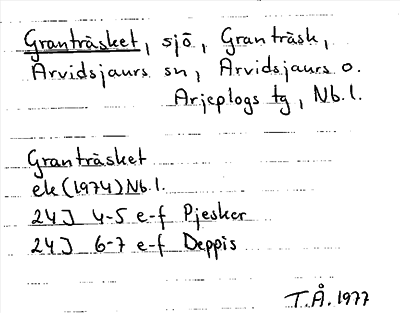 Granträsket, sjö, Granträsk,
Arvidsjaurs sn, Arvidsjaurs o.
Arjeplogs tg, Nb.l.
Granträsket
ek (1974) Nb.l.
24J 4-5 e-f Pjesker
24J 6-7 e-f Deppis
T.Å. 1977